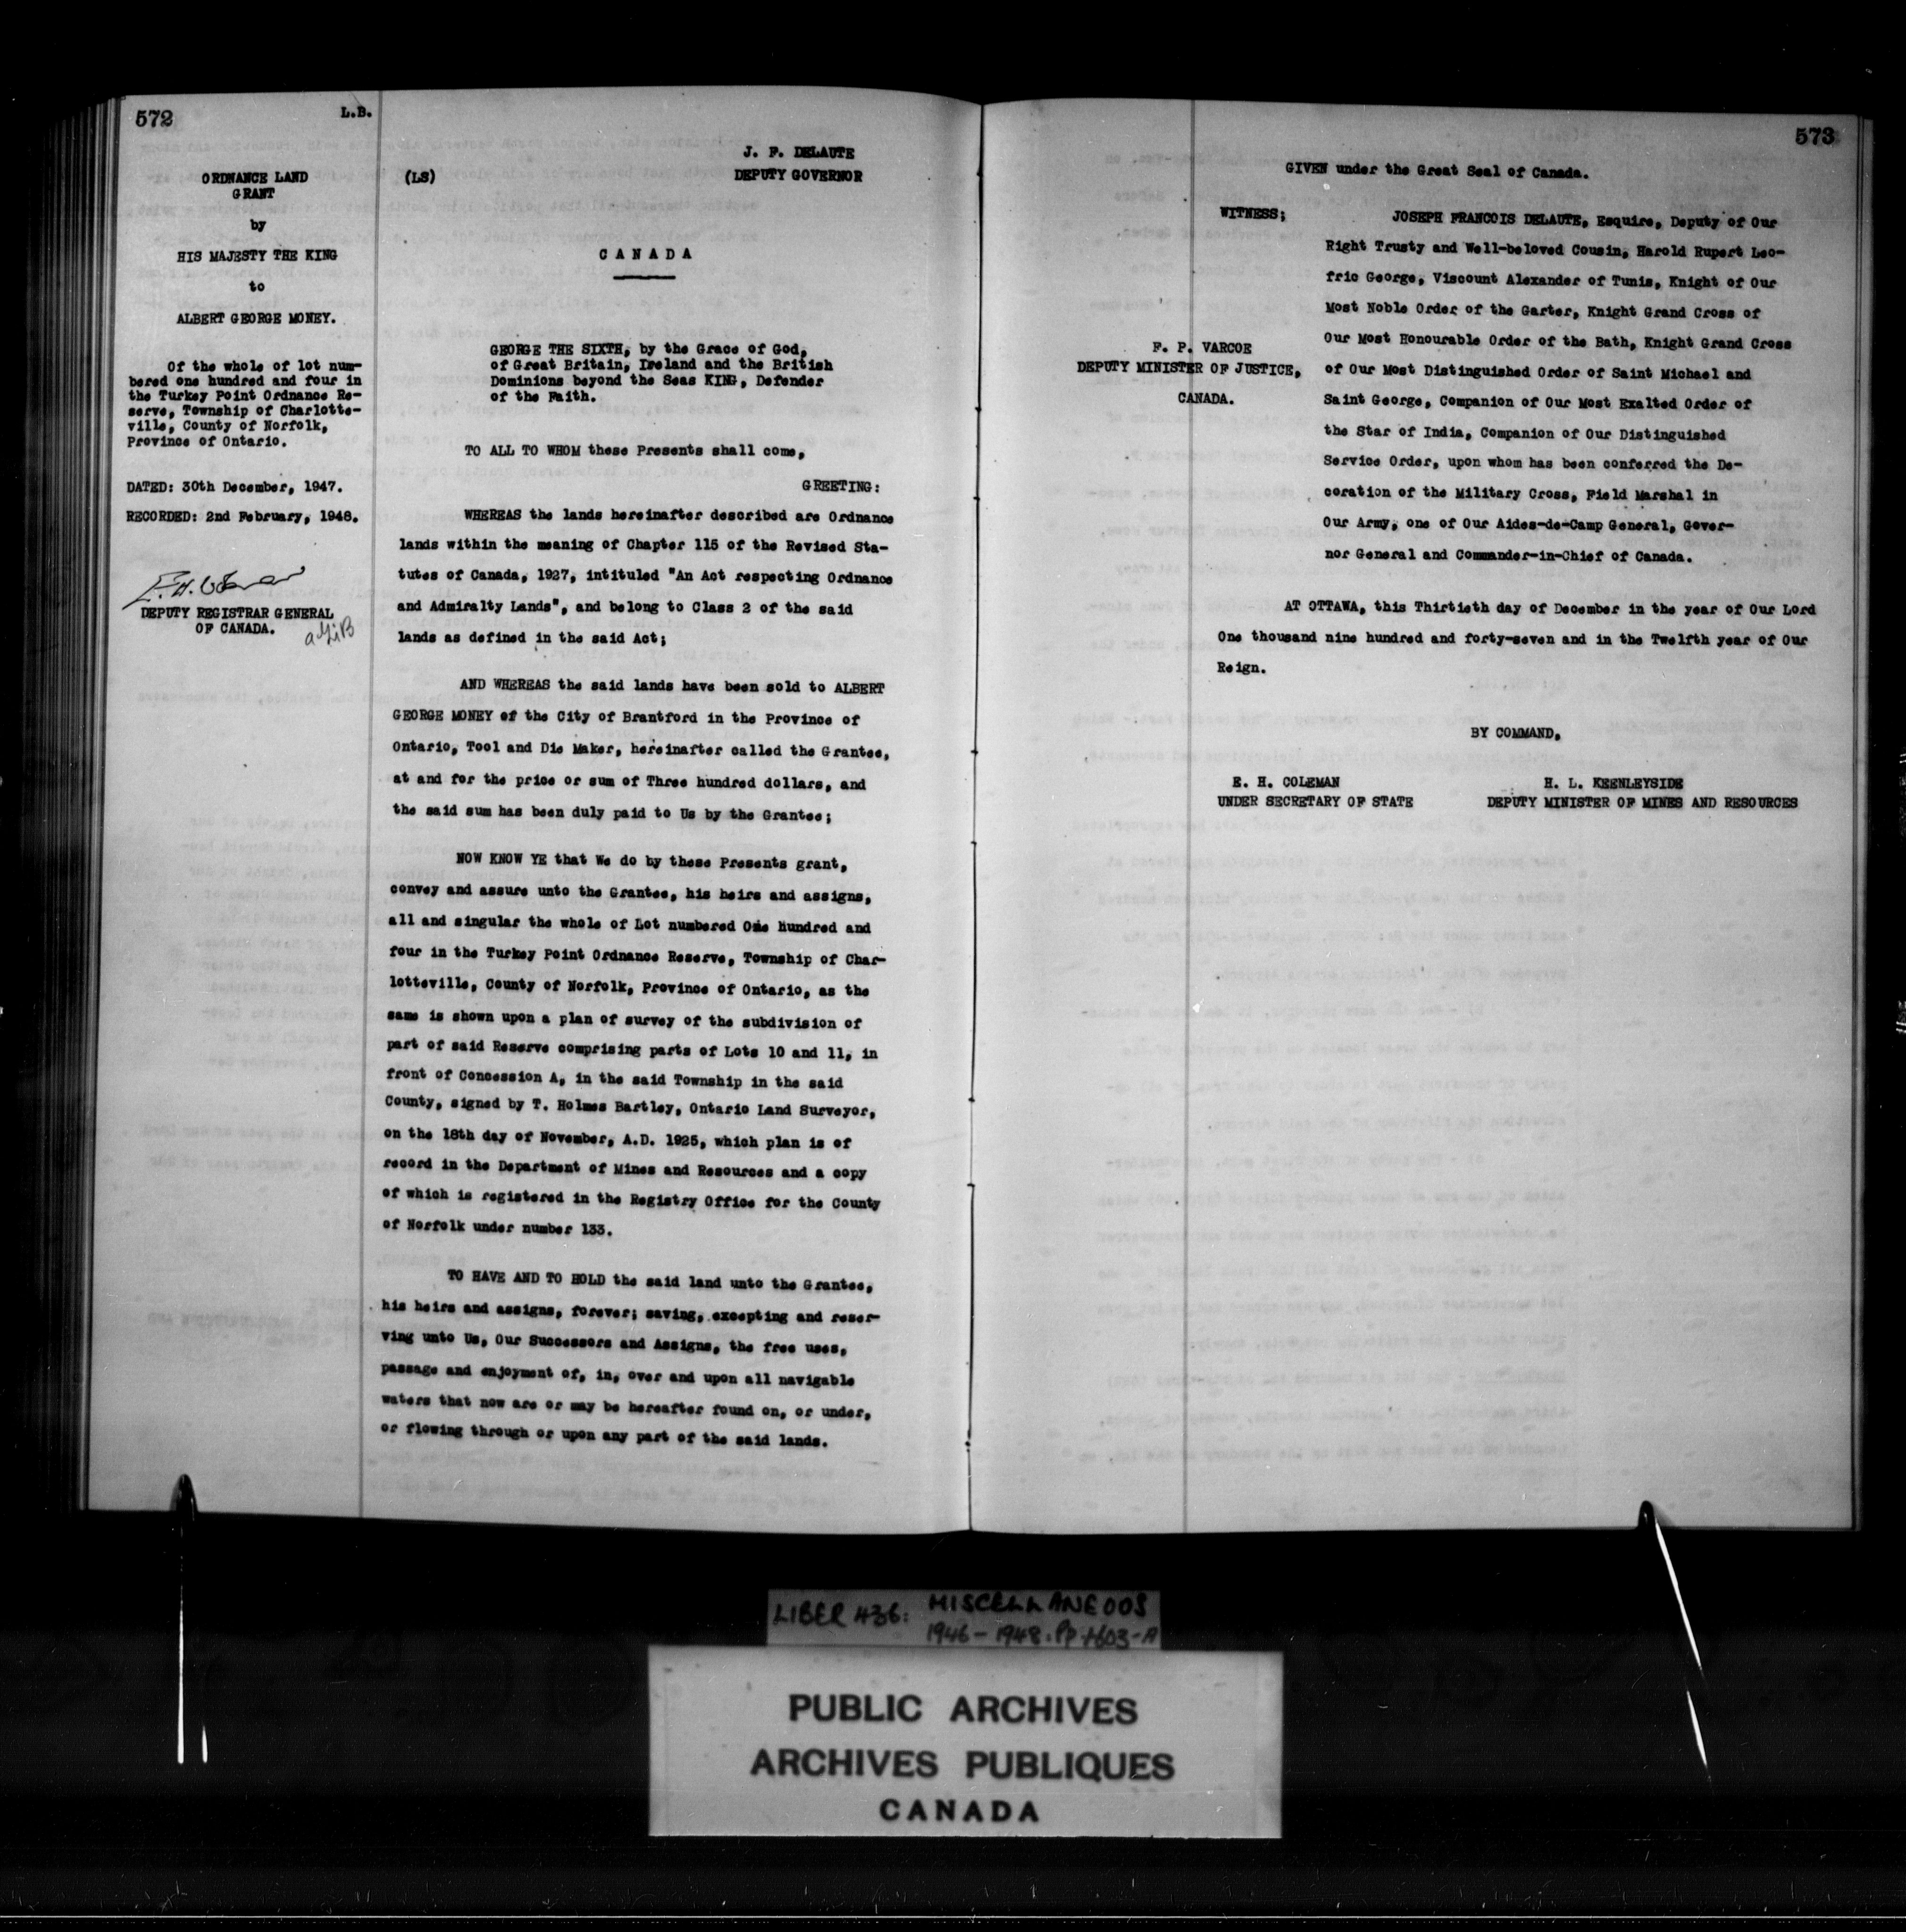 572
L.B.
ORDNANCE LAND
GRANT
by
HIS MAJESTY THE KING
to
ALBERT GEORGE MONEY.
Of the whole of lot num-
bered one hundred and four in
the Turkey Point Ordnance Re-
serve, Township of Charlotte-
ville, County of Norfolk,
Province of Ontario.
DATED: 30th December, 1947.
RECORDED: 2nd February, 1948.
DEPUTY REGISTRAR GENERAL
OF CANADA.
J. F. DELAUTE
(LS) DEPUTY GOVERNOR
CANADA
GEORGE THE SIXTH, by the Grace of God,
of Great Britain, Ireland and the British
Dominions beyond the Seas KING, Defender
of the Faith.
TO ALL TO WHOM these Presents shall come,
GREETING:
WHEREAS the lands hereinafter described are Ordnance
lands within the meaning of Chapter 115 of the Revised Sta-
tutes of Canada, 1927, intituled "An Act respecting Ordnance
and Admiralty Lands", and belong to Class 2 of the said
lands as defined in the said Act;
AND WHEREAS the said lands have been sold to ALBERT
GEORGE MONEY of the City of Brantford in the Province of
Ontario, Tool and Die Maker, hereinafter called the Grantee,
at and for the price or sum of Three hundred dollars, and
the said sum has been duly paid to Us by the Grantee;
NOW KNOW YE that We do by these Presents grant,
convey and assure unto the Grantee, his heirs and assigns,
all and singular the whole of Lot numbered One Hundred and
four in the Turkey Point Ordnance Reserve, Township of Char-
lotteville, County of Norfolk, Province of Ontario, as the
same is shown upon a plan of survey of the subdivision of
part of said Reserve comprising parts of Lots 10 and 11, in
front of Concession A, in the said Township in the said
County, signed by T. Holmes Bartley, Ontario Land Surveyor,
on the 18th day of November, A.D. 1925, which plan is of
record in the Department of Mines and Resources and a copy
of which is registered in the Registry Office for the County
of Norfolk under number 133.
TO HAVE AND TO HOLD the said land unto the Grantee,
his heirs and assigns, forever; saving, excepting and reser-
ving unto Us, Our Successors and Assigns, the free uses,
passage and enjoyment of, in, over and upon all navigable
waters that now are or may be hereafter found on, or under,
or flowing through or upon any part of the said lands.
573
GIVEN under the Great Seal of Canada.
WITNESS; JOSEPH FRANCOIS DELAUTE, Esquire, Deputy of Our
Right Trusty and Well-beloved Cousin, Harold Rupert Leo-
fric George, Viscount Alexander of Tunis, Knight of Our
Most Noble Order of the Garter, Knight Grand Cross of
Our Most Honourable Order of the Bath, Knight Grand Cross
of Our Most Distinguished Order of Saint Michael and
Saint George, Companion of Our Most Exalted Order of
the Star of India, Companion of Our Distinguished
Service Order, upon whom has been conferred the De-
coration of the Military Cross, Field Marshal in
Our Army, one of Our Aides-de-Camp General, Gover-
nor General and Commander-in-Chief of Canada.
F. P. VARCOE
DEPUTY MINISTER OF JUSTICE,
CANADA.
AT OTTAWA, this Thirtieth day of December in the year of Our Lord
One thousand nine hundred and forty-seven and in the Twelfth year of Our
Reign.
BY COMMAND,
E. H. COLEMAN
UNDER SECRETARY OF STATE
H. L. KEENLEYSIDE
DEPUTY MINISTER OF MINES AND RESOURCES
LIBER 436: MISCELLANEOUS
1946-1948: Pp 1-603-A
PUBLIC ARCHIVES
ARCHIVES PUBLIQUES
CANADA